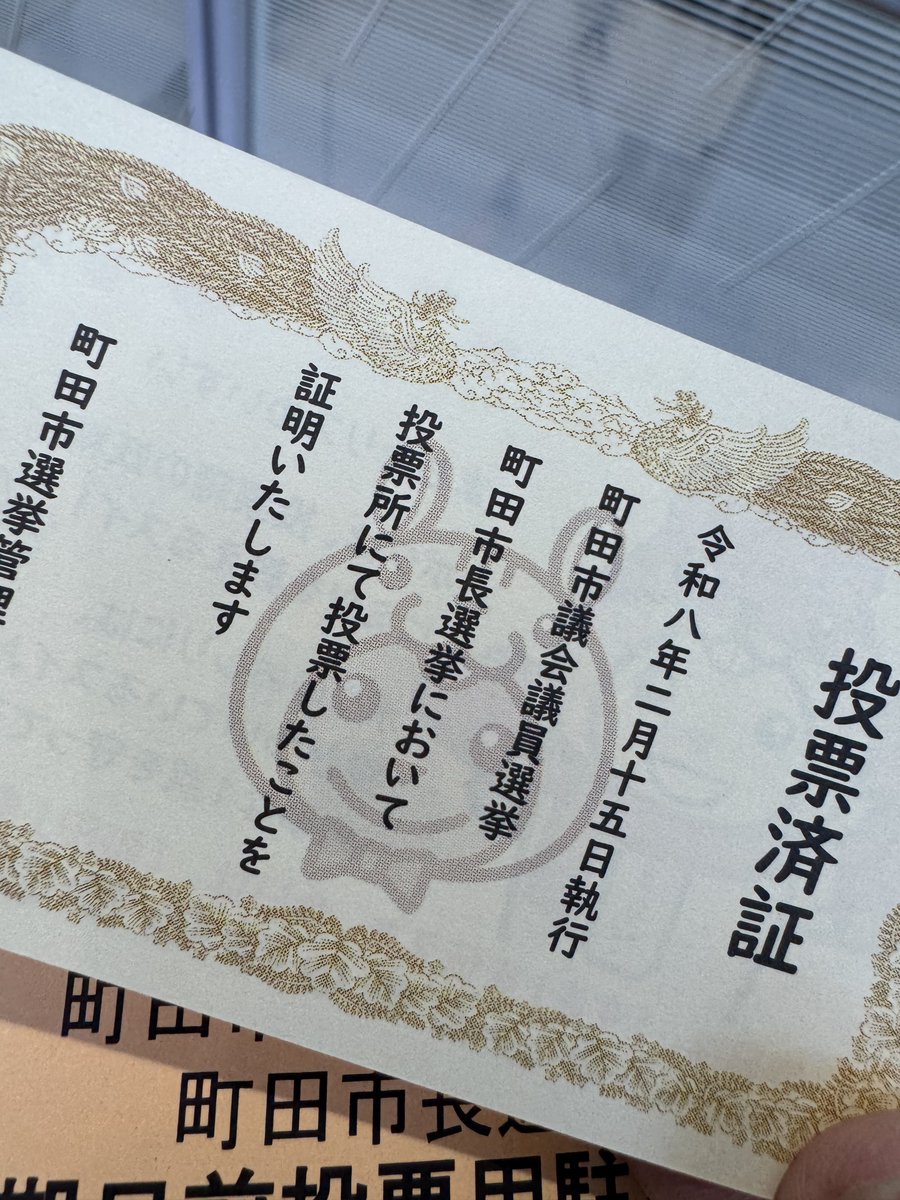 投票済証
令和八年二月十五日執行
町田市議会議員選挙
町田市長選挙において
投票所にて投票したことを
証明いたします
町田市選挙管理
町田市
町田市長選
期日前投票用駐